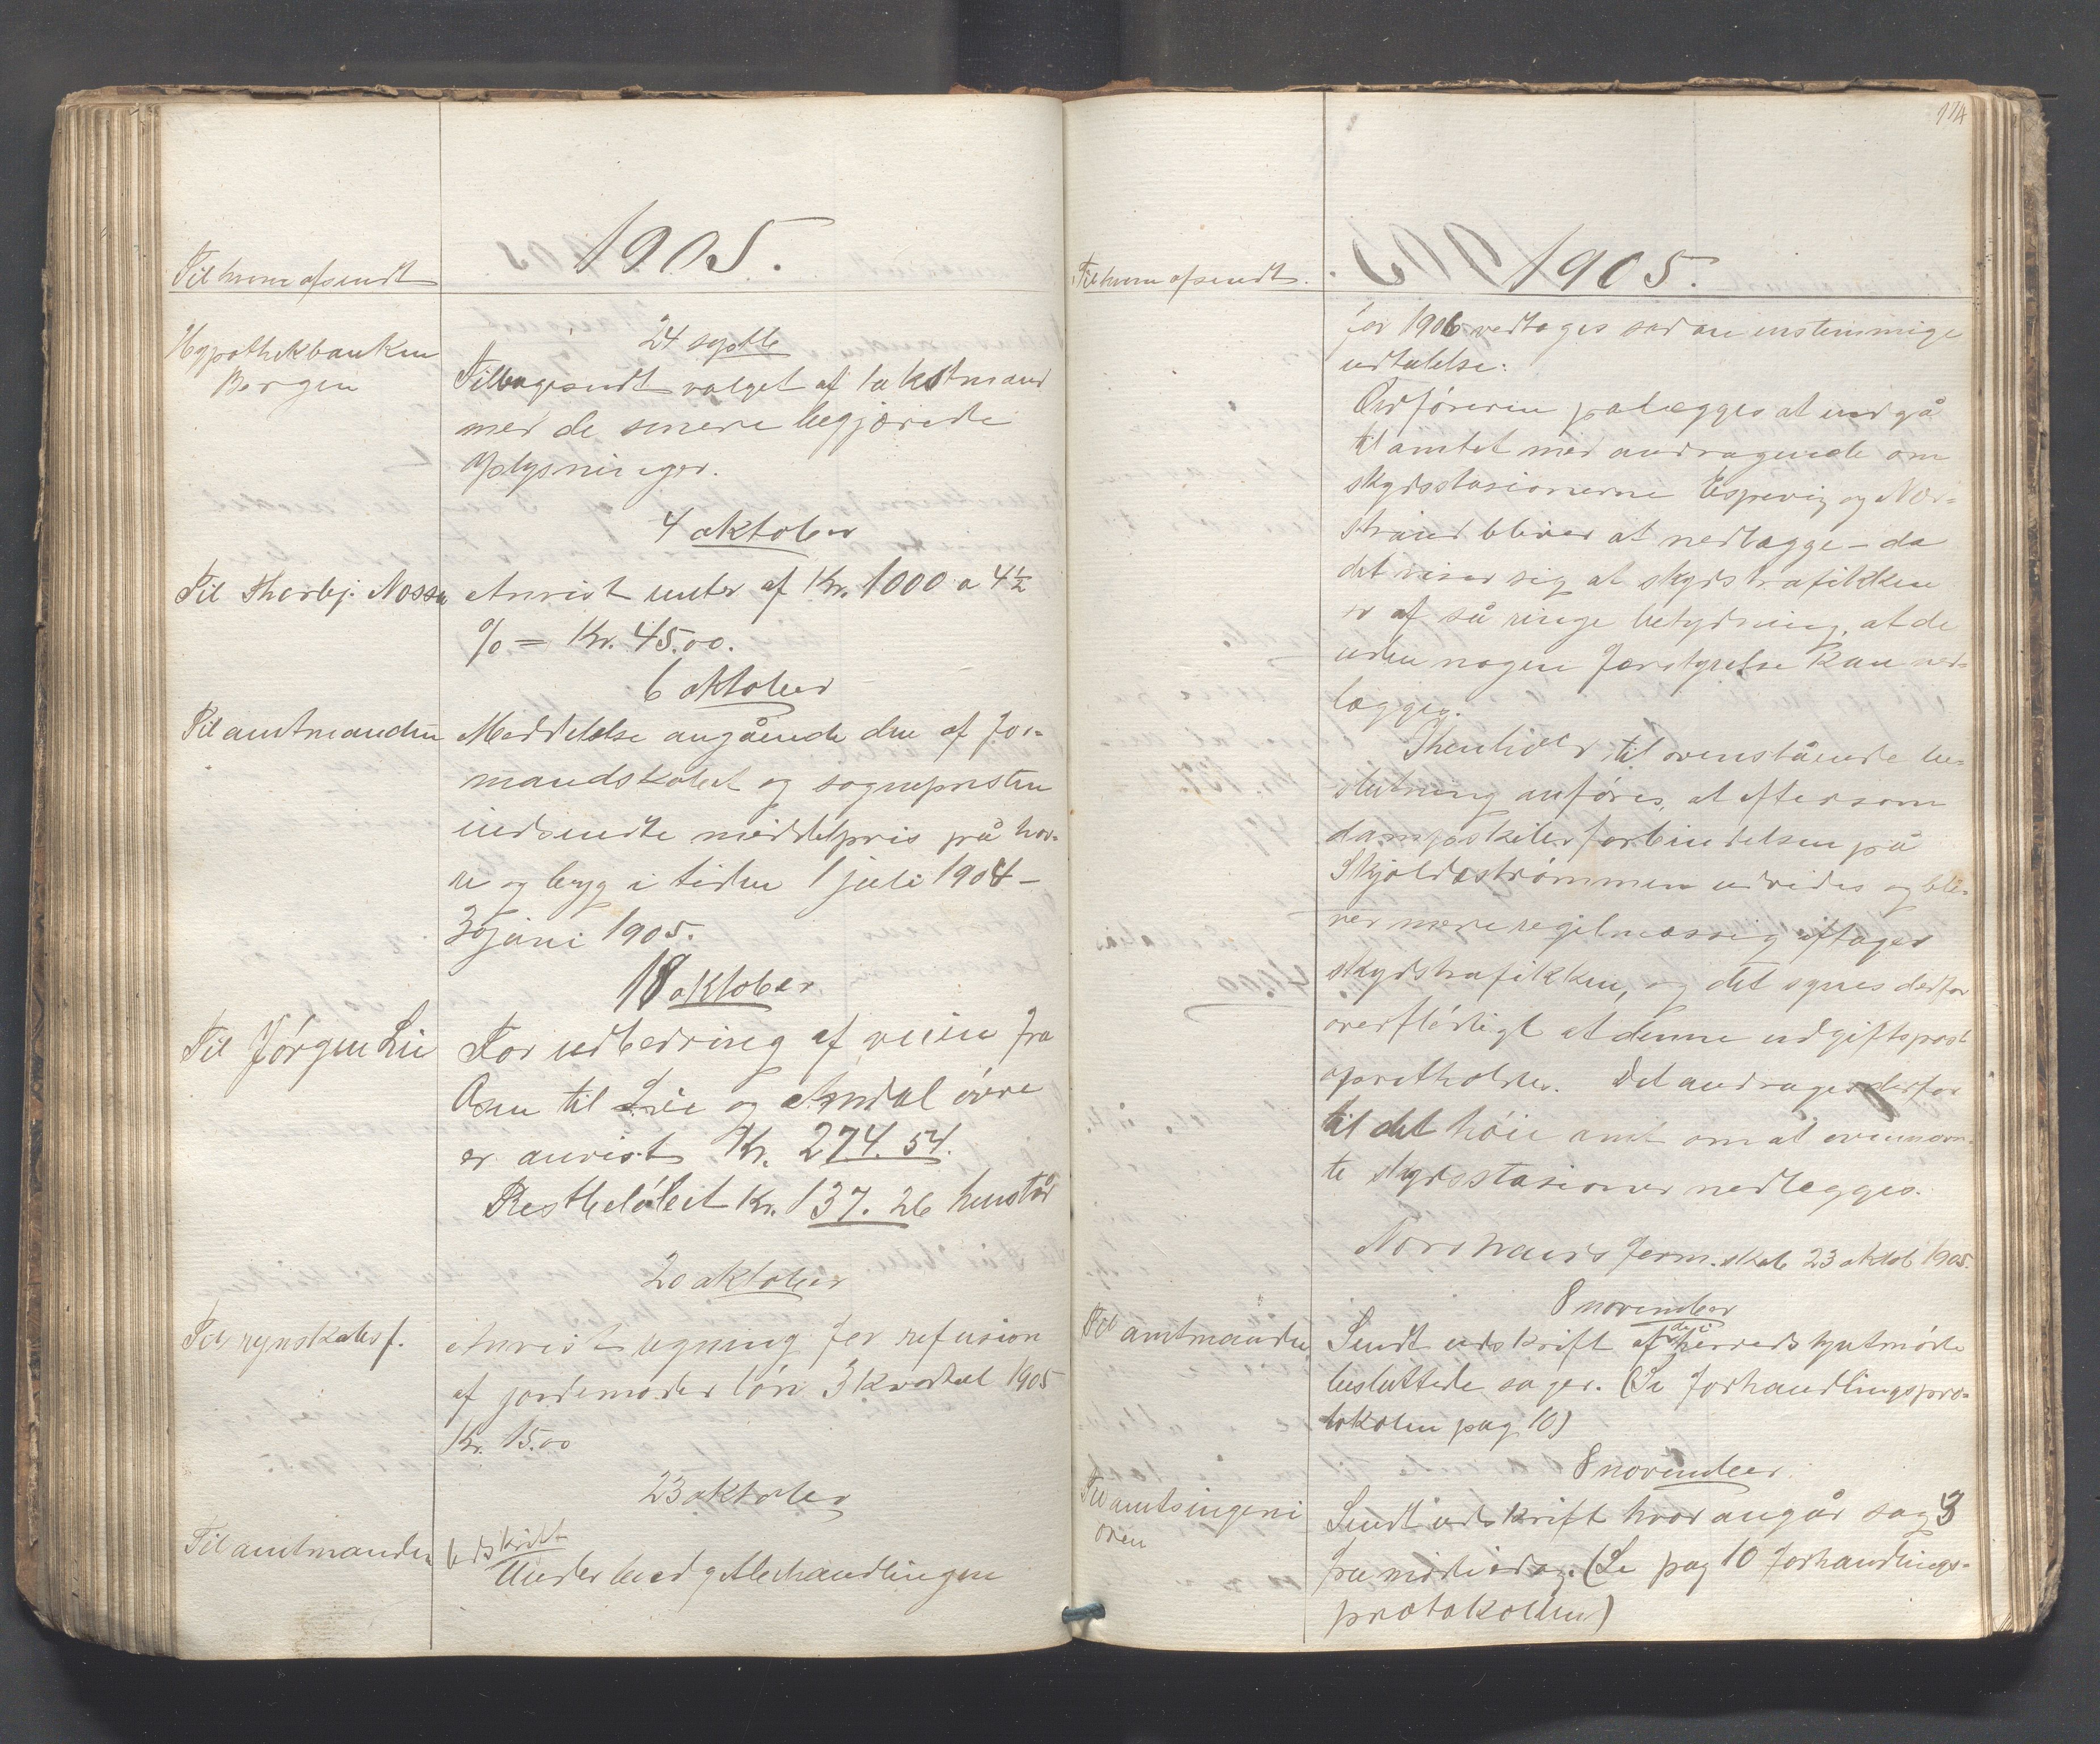 1905.
Til hvem afsendt
Hypothekbanken
Bergen
24 septb
Tilbagesendt valget af takstmænd
med de senere begjærede
oplysninger.
4 oktober
Til Thorbj. Nossen
Anvist renter af Kr. 1000 a 4½
% = Kr. 45.00.
6 oktober
Til amtmanden
Meddelelse angående den af for-
mandskabet og sognepresten
indsendte middelpris på hav-
re og byg i tiden 1 juli 1904 -
30 juni 1905.
18 oktober
Til Jörgen Lie
For udbedring af veien fra
Osen til Lie og Amdal övre
er anvist Kr. 274.54.
Restbelöbet Kr. 137.26 henstår
20 oktober
Til rynskabsf.
Anvist regning for refusion
af jordemoder lön 3 kvartal 1905
Kr. 15.00
23 oktober
Til amtmanden
Udskrift
Under budgetbehandlingen
114
Til hvem afsendt.
1905.
for 1906 vedtoges sådan enstemmige
udtalelse:
Ordföreren pålægges at indgå
til amtet med andragende om
skydsstasionerne Espevig og Nær-
strand bliver at nedlægge - da
det viser sig at skydstrafikken
er af så ringe betydning, at de
uden nogen forstyrelse kan ned-
lægges.
I henhold til ovenstående be-
slutning anföres, at eftersom
dampskibsforbindelsen på
Skjoldeströmmen udvides og bli-
ver mere regelmæssig aftager
skydstrafikken, og det synes derfor
overflödigt at denne udgiftspost
opretholdes. Det andrages derfor
til det höie amt om at ovennævn-
te skydsstasioner nedlægges.
Nærstrands form.skab 23 oktob 1905.
8 november
Til amtmanden
Sendt udskrift af de i herredsstyrmöde
besluttede sager. (Se forhandlingspro-
tokolen pag 10)
8 november
Til amtsingeni
ören
Sendt udskrift hvad angår sag 3
fra möde idag. (Se pag 10 forhandlings-
protokollen)